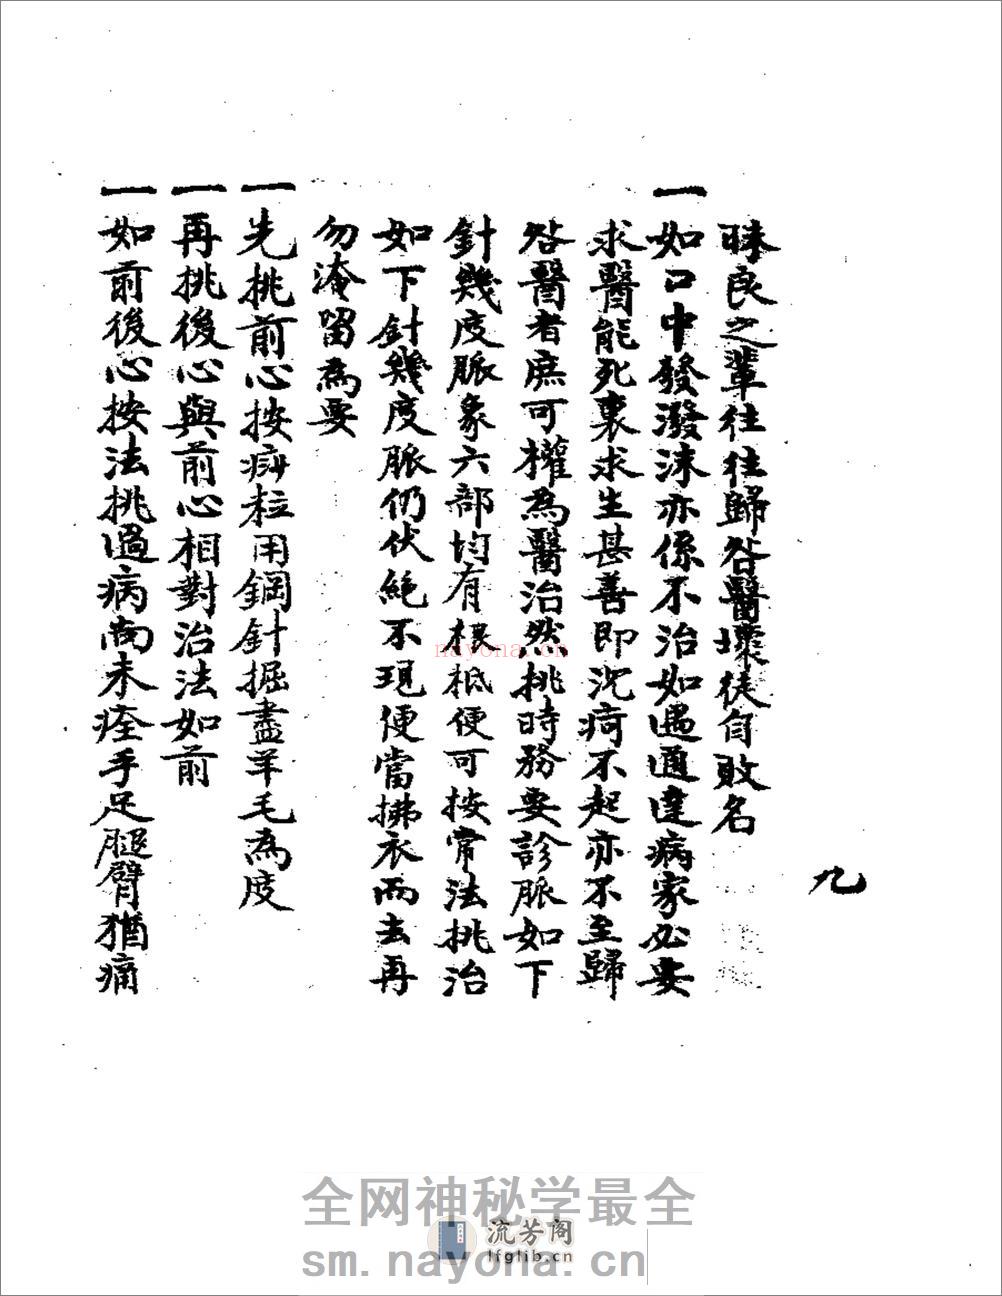 昧良之輩往往歸咎醫壞徒自敗名
九
一如口中發潑沫亦係不治如遇通達病家必要
求醫能死裏求生甚善即沉疴不起亦不至歸
咎醫者庶可權為醫治然挑時務要診脈如下
針幾度脈象六部均有根柢便可按常法挑治
如下針幾度脈仍伏絕不現便當拂衣而去再
勿淹留為要
一先挑前心按痧粒用鋼針掘盡羊毛為度
一再挑後心與前心相對治法如前
一如前後心按法挑過病尚未痊手足腿臂猶痛
nayona.cn
全网神秘学最全
流芳阁
lfglib.cn
sm.nayona.cn